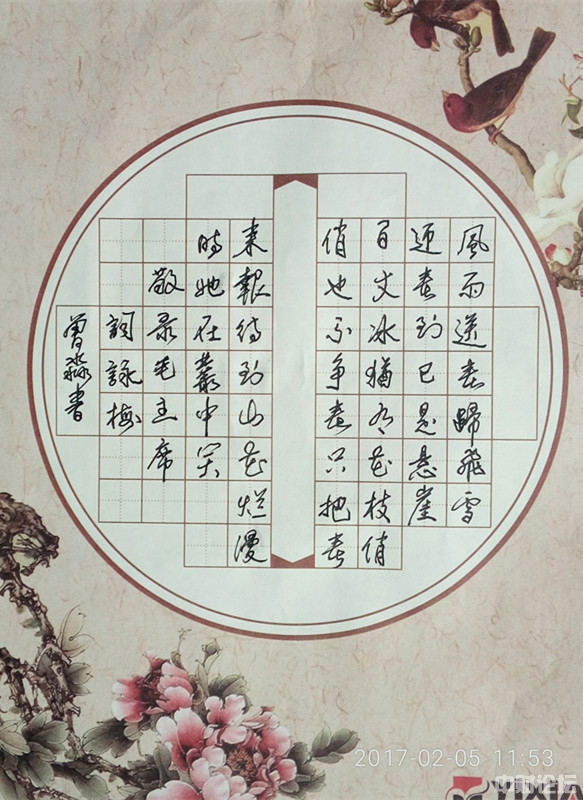 風雨送春歸飛雪
迎春到已是悬崖
百丈冰猶有花枝俏
俏也不争春只把春
来報待到山花烂漫
時她在叢中笑
敬录毛主席
詞詠梅
曾淼書
2017-02-05 11:53
中财论坛